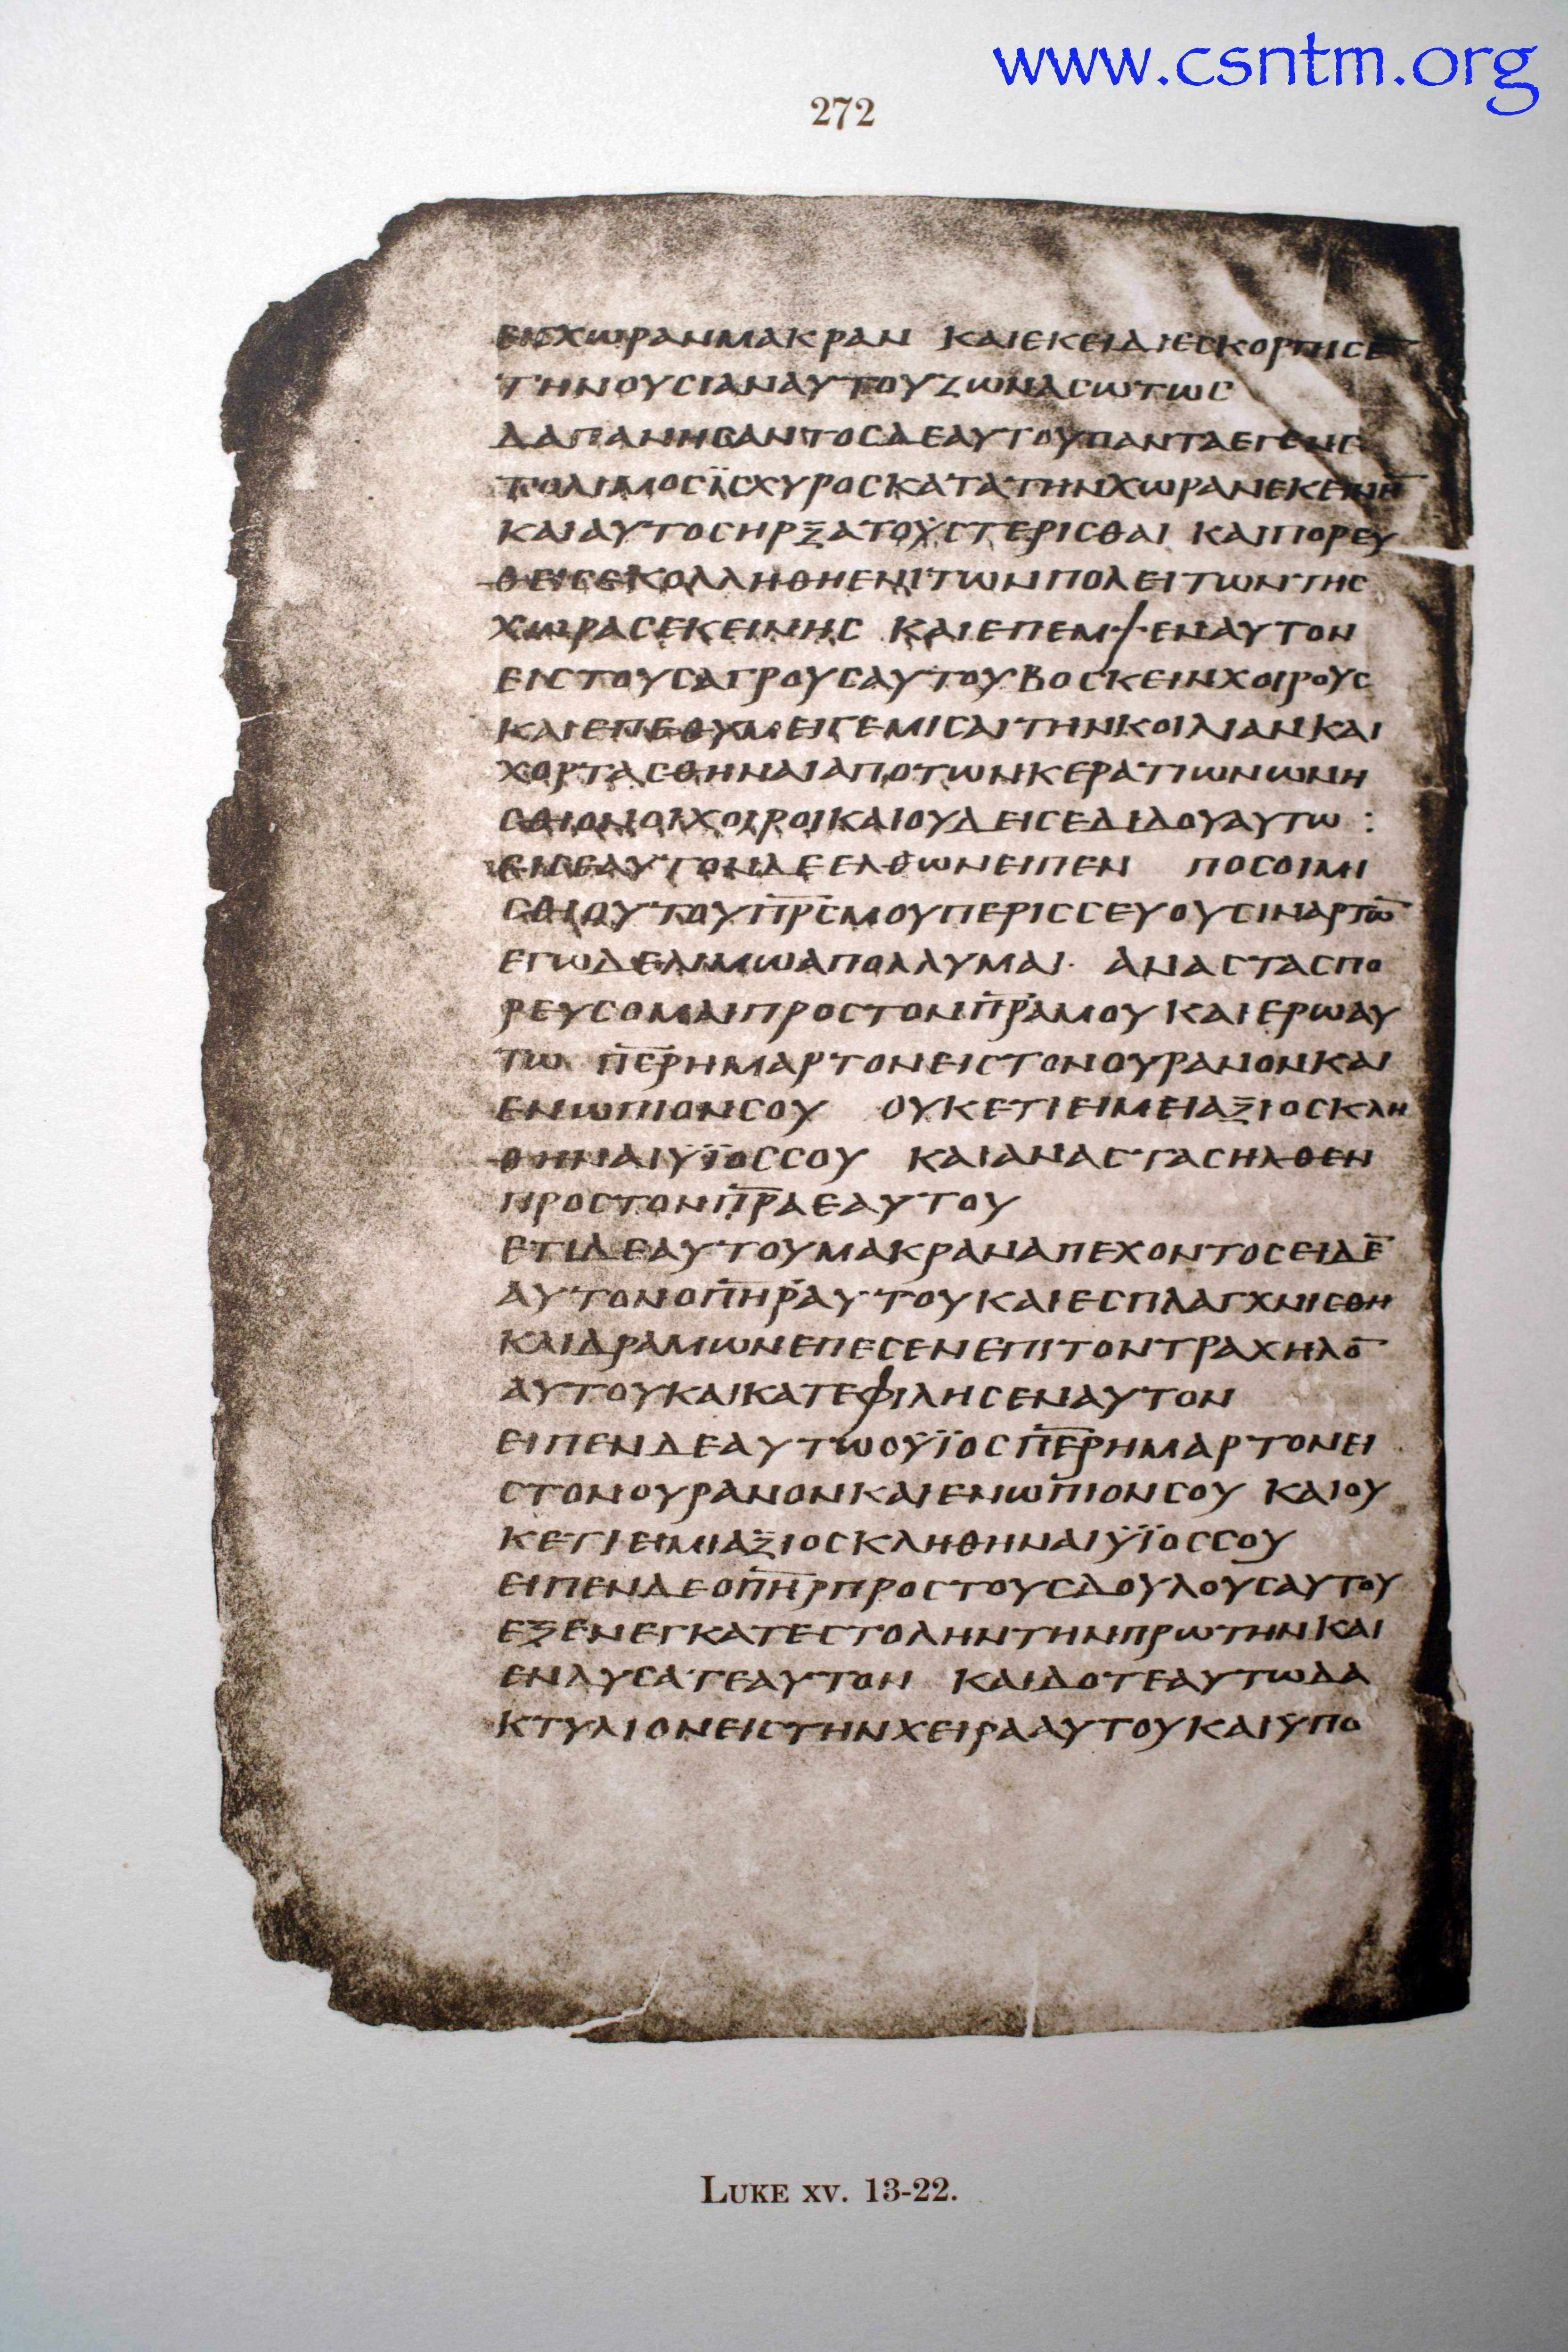 www.csntm.org
272
ΕΙϹΧΩΡΑΝΜΑΚΡΑΝ ΚΑΙΕΚΕΙΔΙΕϹΚΟΡΠΙϹΕ̅
ΤΗΝΟΥϹΙΑΝΑΥΤΟΥΖΩΝΑϹΩΤΩϹ
ΔΑΠΑΝΗϹΑΝΤΟϹΔΕΑΥΤΟΥΠΑΝΤΑΕΓΕΝΕ
ΤΟΛΙΜΟϹΪϹΧΥΡΟϹΚΑΤΑΤΗΝΧΩΡΑΝΕΚΕΙΝΗ̅
ΚΑΙΑΥΤΟϹΗΡΞΑΤΟΫϹΤΕΡΙϹΘΑΙ ΚΑΙΠΟΡΕΥ
ΘΕΙϹΕΚΟΛΛΗΘΗΕΝΙΤΩΝΠΟΛΕΙΤΩΝΤΗϹ
ΧΩΡΑϹΕΚΕΙΝΗϹ ΚΑΙΕΠΕΜΨΕΝΑΥΤΟΝ
ΕΙϹΤΟΥϹΑΓΡΟΥϹΑΥΤΟΥΒΟϹΚΕΙΝΧΟΙΡΟΥϹ
ΚΑΙΕΠΕΘΥΜΕΙΓΕΜΙϹΑΙΤΗΝΚΟΙΛΙΑΝΚΑΙ
ΧΟΡΤΑϹΘΗΝΑΙΑΠΟΤΩΝΚΕΡΑΤΙΩΝΩΝΗ
ϹΘΙΟΝΟΙΧΟΙΡΟΙΚΑΙΟΥΔΕΙϹΕΔΙΔΟΥΑΥΤΩ :
ΕΙϹΕΑΥΤΟΝΔΕΕΛΘΩΝΕΙΠΕΝ ΠΟϹΟΙΜΙ
ϹΘΙΟΥΤΟΥΠ̅Ρ̅Ϲ̅ΜΟΥΠΕΡΙϹϹΕΥΟΥϹΙΝΑΡΤΩ̅
ΕΓΩΔΕΛΙΜΩΑΠΟΛΛΥΜΑΙ· ΑΝΑϹΤΑϹΠΟ
ΡΕΥϹΟΜΑΙΠΡΟϹΤΟΝΠ̅Ρ̅ΑΜΟΥΚΑΙΕΡΩΑΥ
ΤΩ Π̅Ε̅Ρ̅ΗΜΑΡΤΟΝΕΙϹΤΟΝΟΥΡΑΝΟΝΚΑΙ
ΕΝΩΠΙΟΝϹΟΥ ΟΥΚΕΤΙΕΙΜΕΙΑΞΙΟϹΚΛΗ
ΘΗΝΑΙΫΪΟϹϹΟΥ ΚΑΙΑΝΑϹΤΑϹΗΛΘΕΝ
ΠΡΟϹΤΟΝΠ̅Ρ̅ΑΕΑΥΤΟΥ
ΕΤΙΔΕΑΥΤΟΥΜΑΚΡΑΝΑΠΕΧΟΝΤΟϹΕΙΔΕ̅
ΑΥΤΟΝΟΠ̅Η̅Ρ̅ΑΥΤΟΥΚΑΙΕϹΠΛΑΓΧΝΙϹΘΗ
ΚΑΙΔΡΑΜΩΝΕΠΕϹΕΝΕΠΙΤΟΝΤΡΑΧΗΛΟ̅
ΑΥΤΟΥΚΑΙΚΑΤΕΦΙΛΗϹΕΝΑΥΤΟΝ
ΕΙΠΕΝΔΕΑΥΤΩΟΫΪΟϹΠ̅Ε̅Ρ̅ΗΜΑΡΤΟΝΕΙ
ϹΤΟΝΟΥΡΑΝΟΝΚΑΙΕΝΩΠΙΟΝϹΟΥ ΚΑΙΟΥ
ΚΕΤΙΕΙΜΙΑΞΙΟϹΚΛΗΘΗΝΑΙΫΪΟϹϹΟΥ
ΕΙΠΕΝΔΕΟΠ̅Η̅Ρ̅ΠΡΟϹΤΟΥϹΔΟΥΛΟΥϹΑΥΤΟΥ
ΕΞΕΝΕΓΚΑΤΕϹΤΟΛΗΝΤΗΝΠΡΩΤΗΝΚΑΙ
ΕΝΔΥϹΑΤΕΑΥΤΟΝ ΚΑΙΔΟΤΕΑΥΤΩΔΑ
ΚΤΥΛΙΟΝΕΙϹΤΗΝΧΕΙΡΑΑΥΤΟΥΚΑΙΫΠΟ
LUKE XV. 13-22.